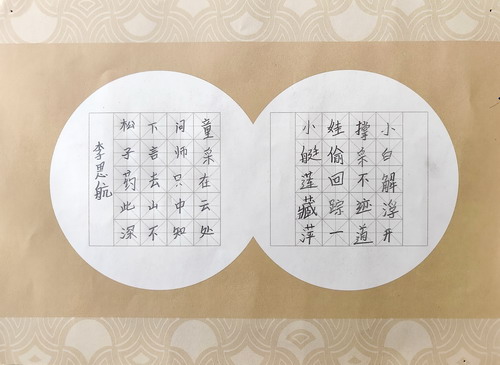 李思航
松下问童
子言师采
药去只在
此山中云
深不知处
小娃撑小
艇偷采白
莲回不解
藏踪迹浮
萍一道开